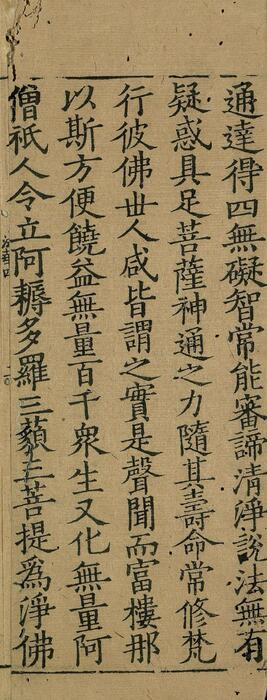 通達得四無礙智常能審諦清淨說法無有
疑惑具足菩薩神通之力隨其壽命常修梵
行彼佛世人咸皆謂之實是聲聞而富樓那
以斯方便饒益無量百千衆生又化無量阿
僧祇人令立阿耨多羅三藐三菩提爲淨佛